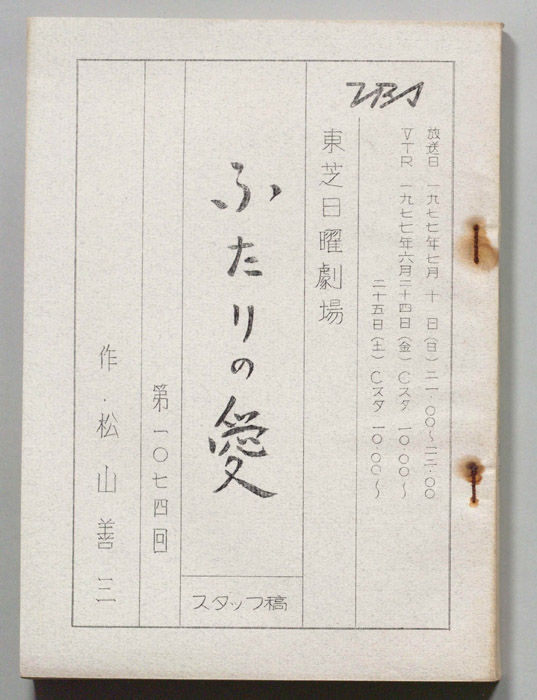 TBS
放送日 一九七七年七月 十 日(日)二一・〇〇〜二二・〇〇
VTR 一九七七年六月二十四日(金)Cスタ 一〇・〇〇〜
二十五日(土)Cスタ 一〇・〇〇〜
東芝日曜劇場
ふたりの愛
スタッフ稿
第一〇七四回
作・松山善三